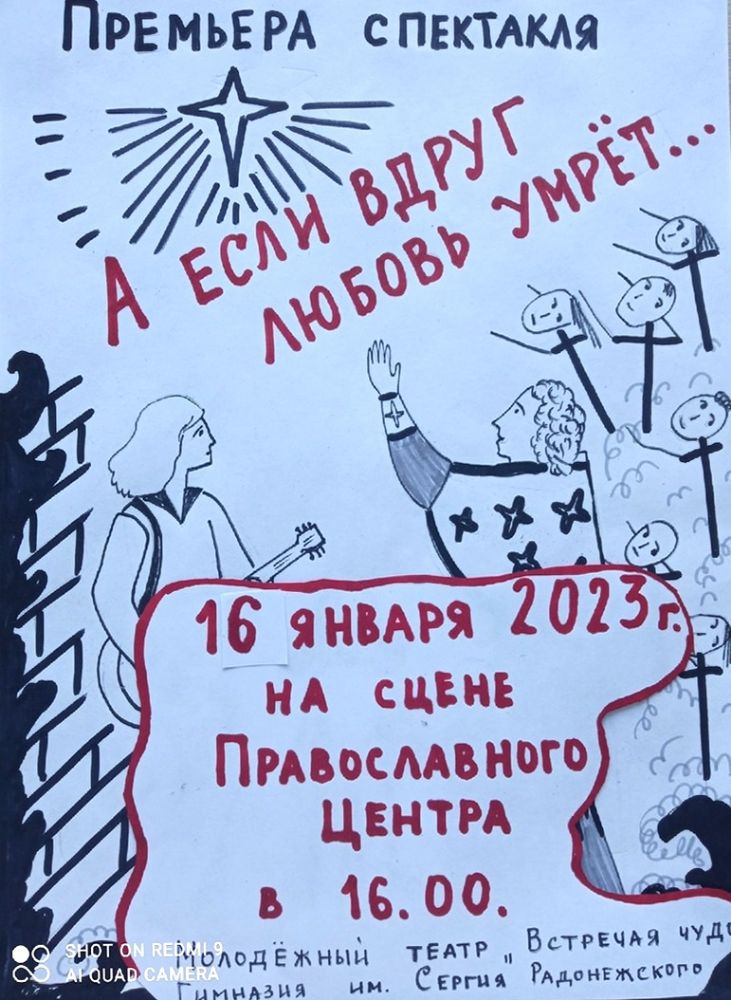 Премьера спектакля
А если вдруг
любовь умрёт...
16 января 2023 г.
на сцене
Православного
центра
в 16.00.
Молодёжный театр „Встречая чудо
Гимназия им. Сергия Радонежского
SHOT ON REDMI 9
AI QUAD CAMERA